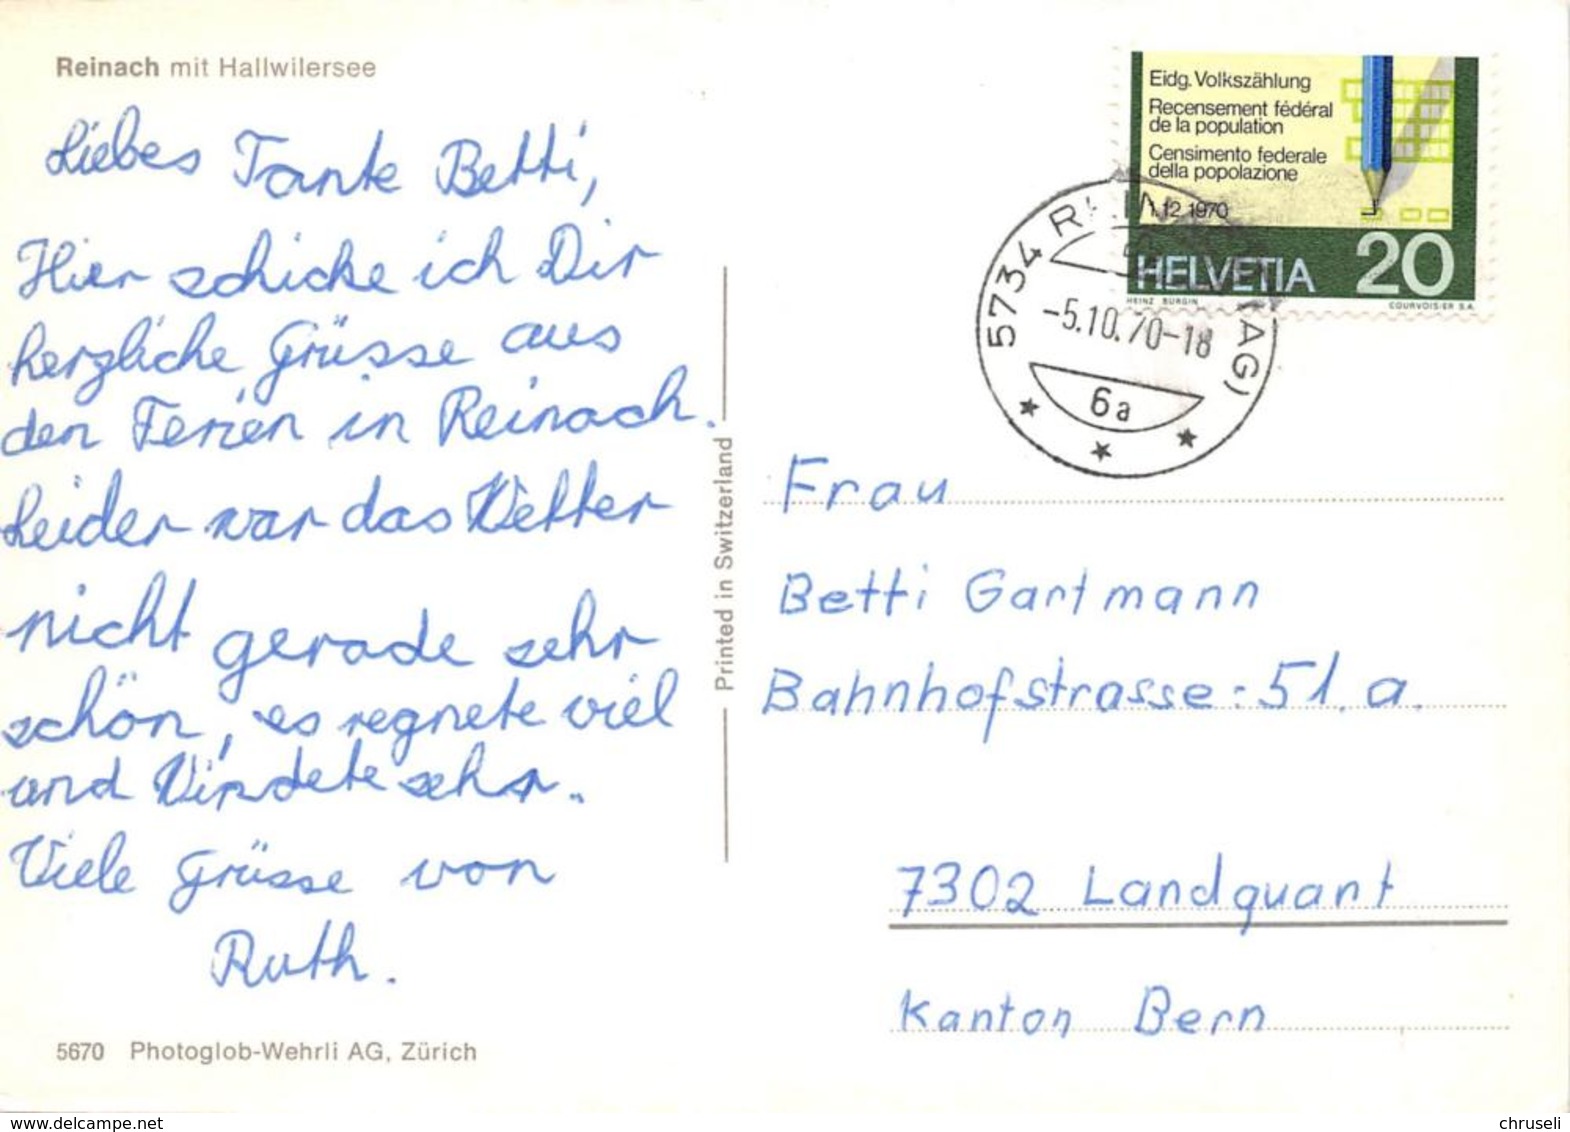 Reinach mit Hallwilersee
Liebes Tante Betti,
Hier schicke ich Dir
herzliche Grüsse aus
den Ferien in Reinach.
Leider war das Wetter
nicht gerade sehr
schön, es regnete viel
und Windete sehr.
Viele Grüsse von
Ruth.
5670 Photoglob-Wehrli AG, Zürich
Printed in Switzerland
Eidg. Volkszählung
Recensement fédéral
de la population
Censimento federale
della popolazione
1.12.1970
HELVETIA 20
HEINZ BÜRGIN COURVOISIER S.A.
5734 (AG)
-5.10.70-18
6a
Frau
Betti Gartmann
Bahnhofstrasse: 51. a.
7302 Landquart
Kanton Bern
delcampe.net
chruseli